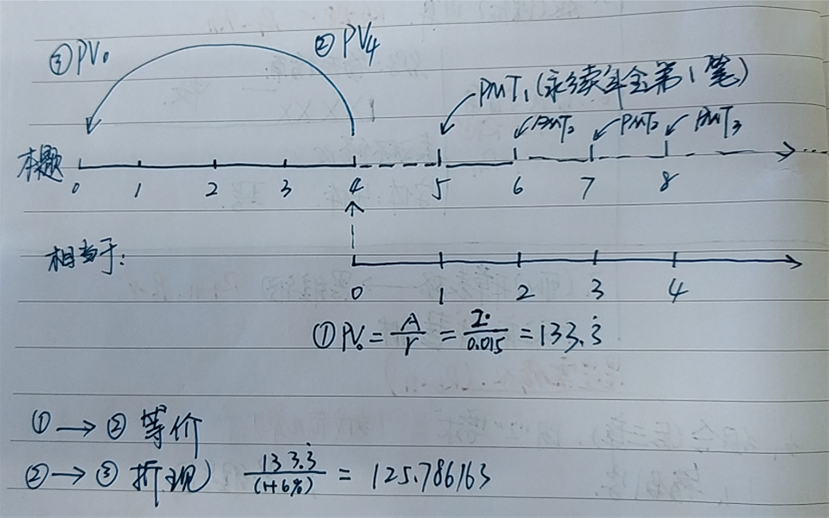 ③PV₀ ②PV4
PMT₁(永续年金第1笔)
PMT₂ PMT₂ PMT₃
本题
0 1 2 3 4 5 6 7 8
相当于:
0 1 2 3 4
①PV₀ = A/r = 2/0.015 = 133.3̇
①→②等价
②→③折现 133.3̇/(1+6%) = 125.786163